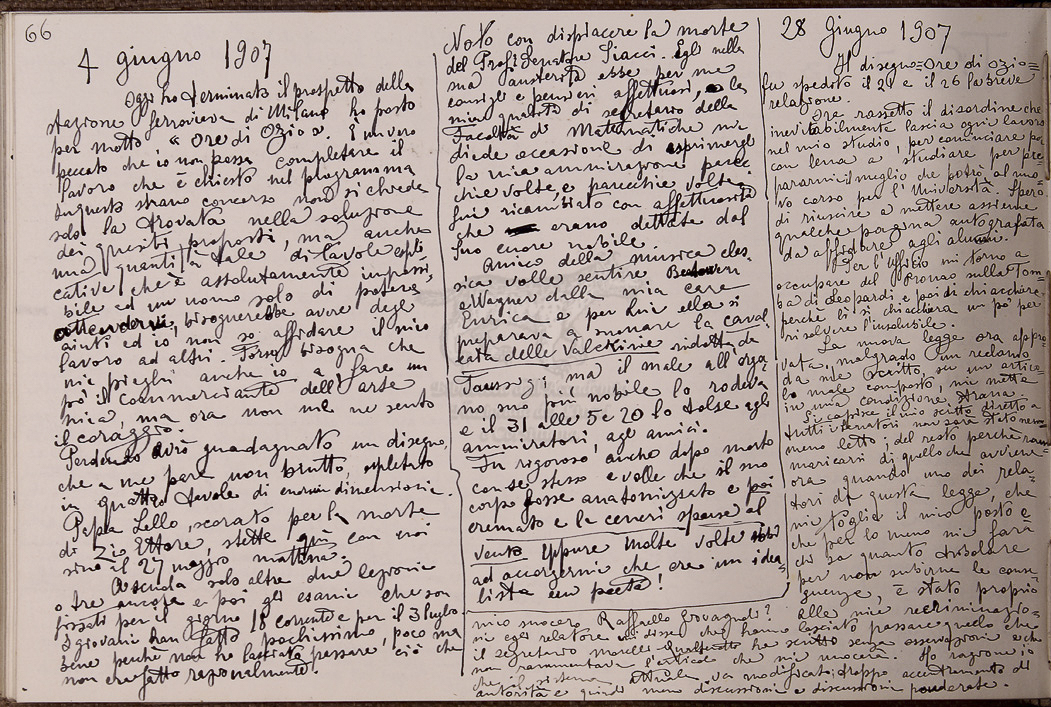 66
4 giugno 1907
Oggi ho terminato il prospetto della
stazione ferroviera di Milano ho posto
per motto "Ore di Ozio". È un vero
peccato che io non possa completare il
lavoro che è chiesto nel programma
In questo strano concorso non si chiede
solo la trovata nella soluzione
dei quesiti proposti, ma anche
una quantità tale di tavole espli
cative che è assolutamente impossi,
bile ad un uomo solo di potere
bisognerebbe avere degli
aiuti ed io, non so affidare il mio
lavoro ad altri. Forse bisogna che
mi pieghi anche io a fare un
po' il commerciante dell'arte
mia, ma ora non me ne sento
il coraggio.
Perdendo avrò guadagnato un disegno,
che a me pare non brutto, espletato
in quattro tavole di enormi dimensioni.
Papa Lello, scorato per la morte
di Zio Ettore, stette qui con noi
sino al 27 maggio mattina.
A scuola solo altre due lezioni
o tre ancora e poi gli esami che son
fissati per il giorno 18 corrente e per il 3 luglio
I giovani han fatto pochissimo, poco ma
bene perché non ho lasciato passare ciò che
non era fatto razionalmente.
Noto con dispiacere la morte
del Prof. Senatore Siacci. Egli nella
sua austerità esse per me
consigli e pensieri affettuosi, e la
mia qualità di segretario della
Facoltà di Matematiche mi
diede occasione di esprimergli
la mia ammirazione parec
chie volte, e parecchie volte
fui ricambiato con affettuosità
che erano dettate dal
suo cuore nobile.
Amico della musica clas
sica volle sentire Beethoven
e Wagner dalla mia cara
Enrica e per lui ella si
preparava a suonare la caval
cata delle Valchirie ridotta da
Taussig, ma il male all'orga
no, suo più nobile lo rodeva
e il 31 alle 5 e 20 lo tolse agli
ammiratori, agli amici.
Fu rigoroso anche dopo morto
con se stesso e volle che il suo
corpo fosse anatomizzato e poi
cremato e le ceneri sparse al
vento. Eppure molte volte
ad accorgermi che era un idea
lista un poeta!
28 Giugno 1907
Il disegno=Ore di ozio=
fu spedito il 21 e il 26 la breve
relazione.
Ora rassetto il disordine che
inevitabilmente lascia ogni lavoro
nel mio studio, per cominciare poi
con lena a studiare, per pre
pararmi il meglio che potrò al nuo
vo corso per l'Università. Spero
di riuscire a mettere assieme
qualche pagina autografata
da affidare agli alunni.
Per l'Ufficio mi torno a
occupare del Pronao sulla Tom
ba di Leopardi e poi di chiacchiere
perché lì si chiacchiera un po' per
risolvere l'insolubile.
La nuova legge ora appro
vata, malgrado un reclamo
da me scritto, su un artico
lo male composto, mi mette
in una condizione strana.
Si capisce il mio scritto diretto a
tutti i senatori non sarà stato nem
meno letto; del resto perché ram
maricarsi di quello che avviene
ora quando uno dei rela
tori di questa legge, che
mi toglie il mio posto e
che per lo meno mi farà
chi sa quanto tribolare
per non subirne le conse
guenze, è stato proprio
mio suocero Raffaello Giovagnoli? Alle mie recriminazio=
ni egli relatore mi disse che hanno lasciato passare quello che
il segretario ha scritto senza osservazioni e che
non rammentava l'articolo che mi nuoceva. Ho ragione io
che il sistema attuale va modificato; troppo accentramento di
autorità e quindi meno discussioni e discussioni ponderate.